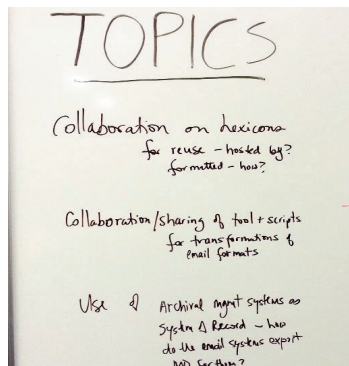 TOPICS
Collaboration on Lexicons
for reuse - hosted by?
formatted - how?
Collaboration/sharing of tool + scripts
for transformations of
email formats
Use of Archival mgmt systems as
System of Record - how
do the email systems export
for them?